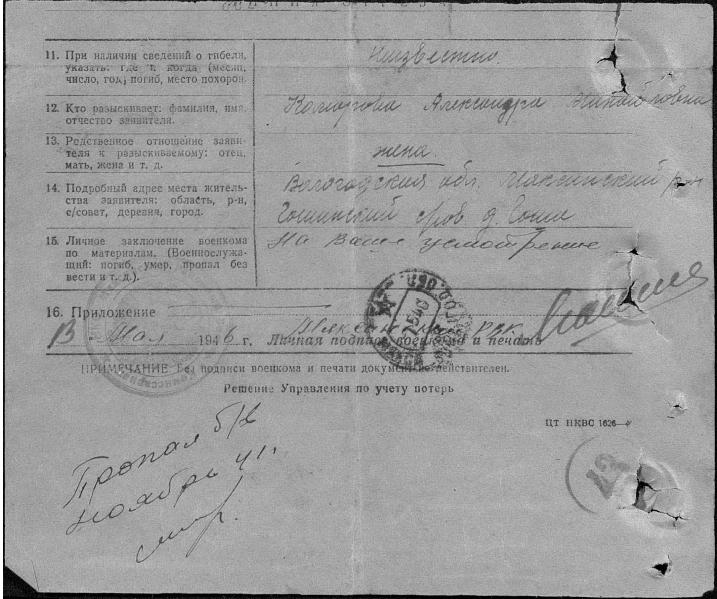 11. При наличии сведений о гибели,
указать: где и когда (месяц,
число, год) погиб, место похорон.
Неизвестно.
12. Кто разыскивает: фамилия, имя,
отчество заявителя.
Комарова Александра
13. Родственное отношение заяви-
теля к разыскиваемому: отец,
мать, жена и т. д.
жена.
14. Подробный адрес места житель-
ства заявителя: область, р-н,
с/совет, деревня, город.
Вологодская обл. Мяксинский р-н
д.
15. Личное заключение военкома
по материалам. (Военнослужа-
щий: погиб, умер, пропал без
вести и т. д.).
На Ваше усмотрение
16. Приложение
13 Мая 1946 г. Мяксинский РВК
Личная подпись военкома и печать
ПРИМЕЧАНИЕ: Без подписи военкома и печати документ недействителен.
Решение Управления по учету потерь
ЦТ НКВС 1626
Пропал б/в
ноябрь 41 г.